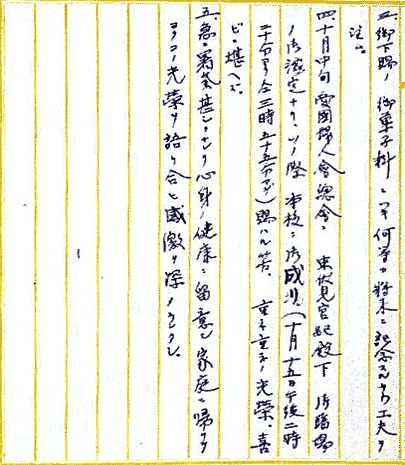 三、御下賜ノ御菓子料ニツキ何等カ将来ニ記念スルヤウ工夫ヲ
注ク。
四、十月中旬愛國婦人會總會ニ東伏見宮妃殿下御臨場
ノ御豫定ナリ、ソノ際本校ニ御成リ(十月十五日午後二時
二十分ヨリ仝三時五十五分マデ)賜ハル筈。重ネ重ネノ光榮、喜
ビニ堪ヘズ。
五、急ニ暑気甚シクナリ心身ノ健康ニ留意シ家庭ニ帰リテ
コノ光榮ヲ語リ合ヒ感激ヲ深メラレタシ。